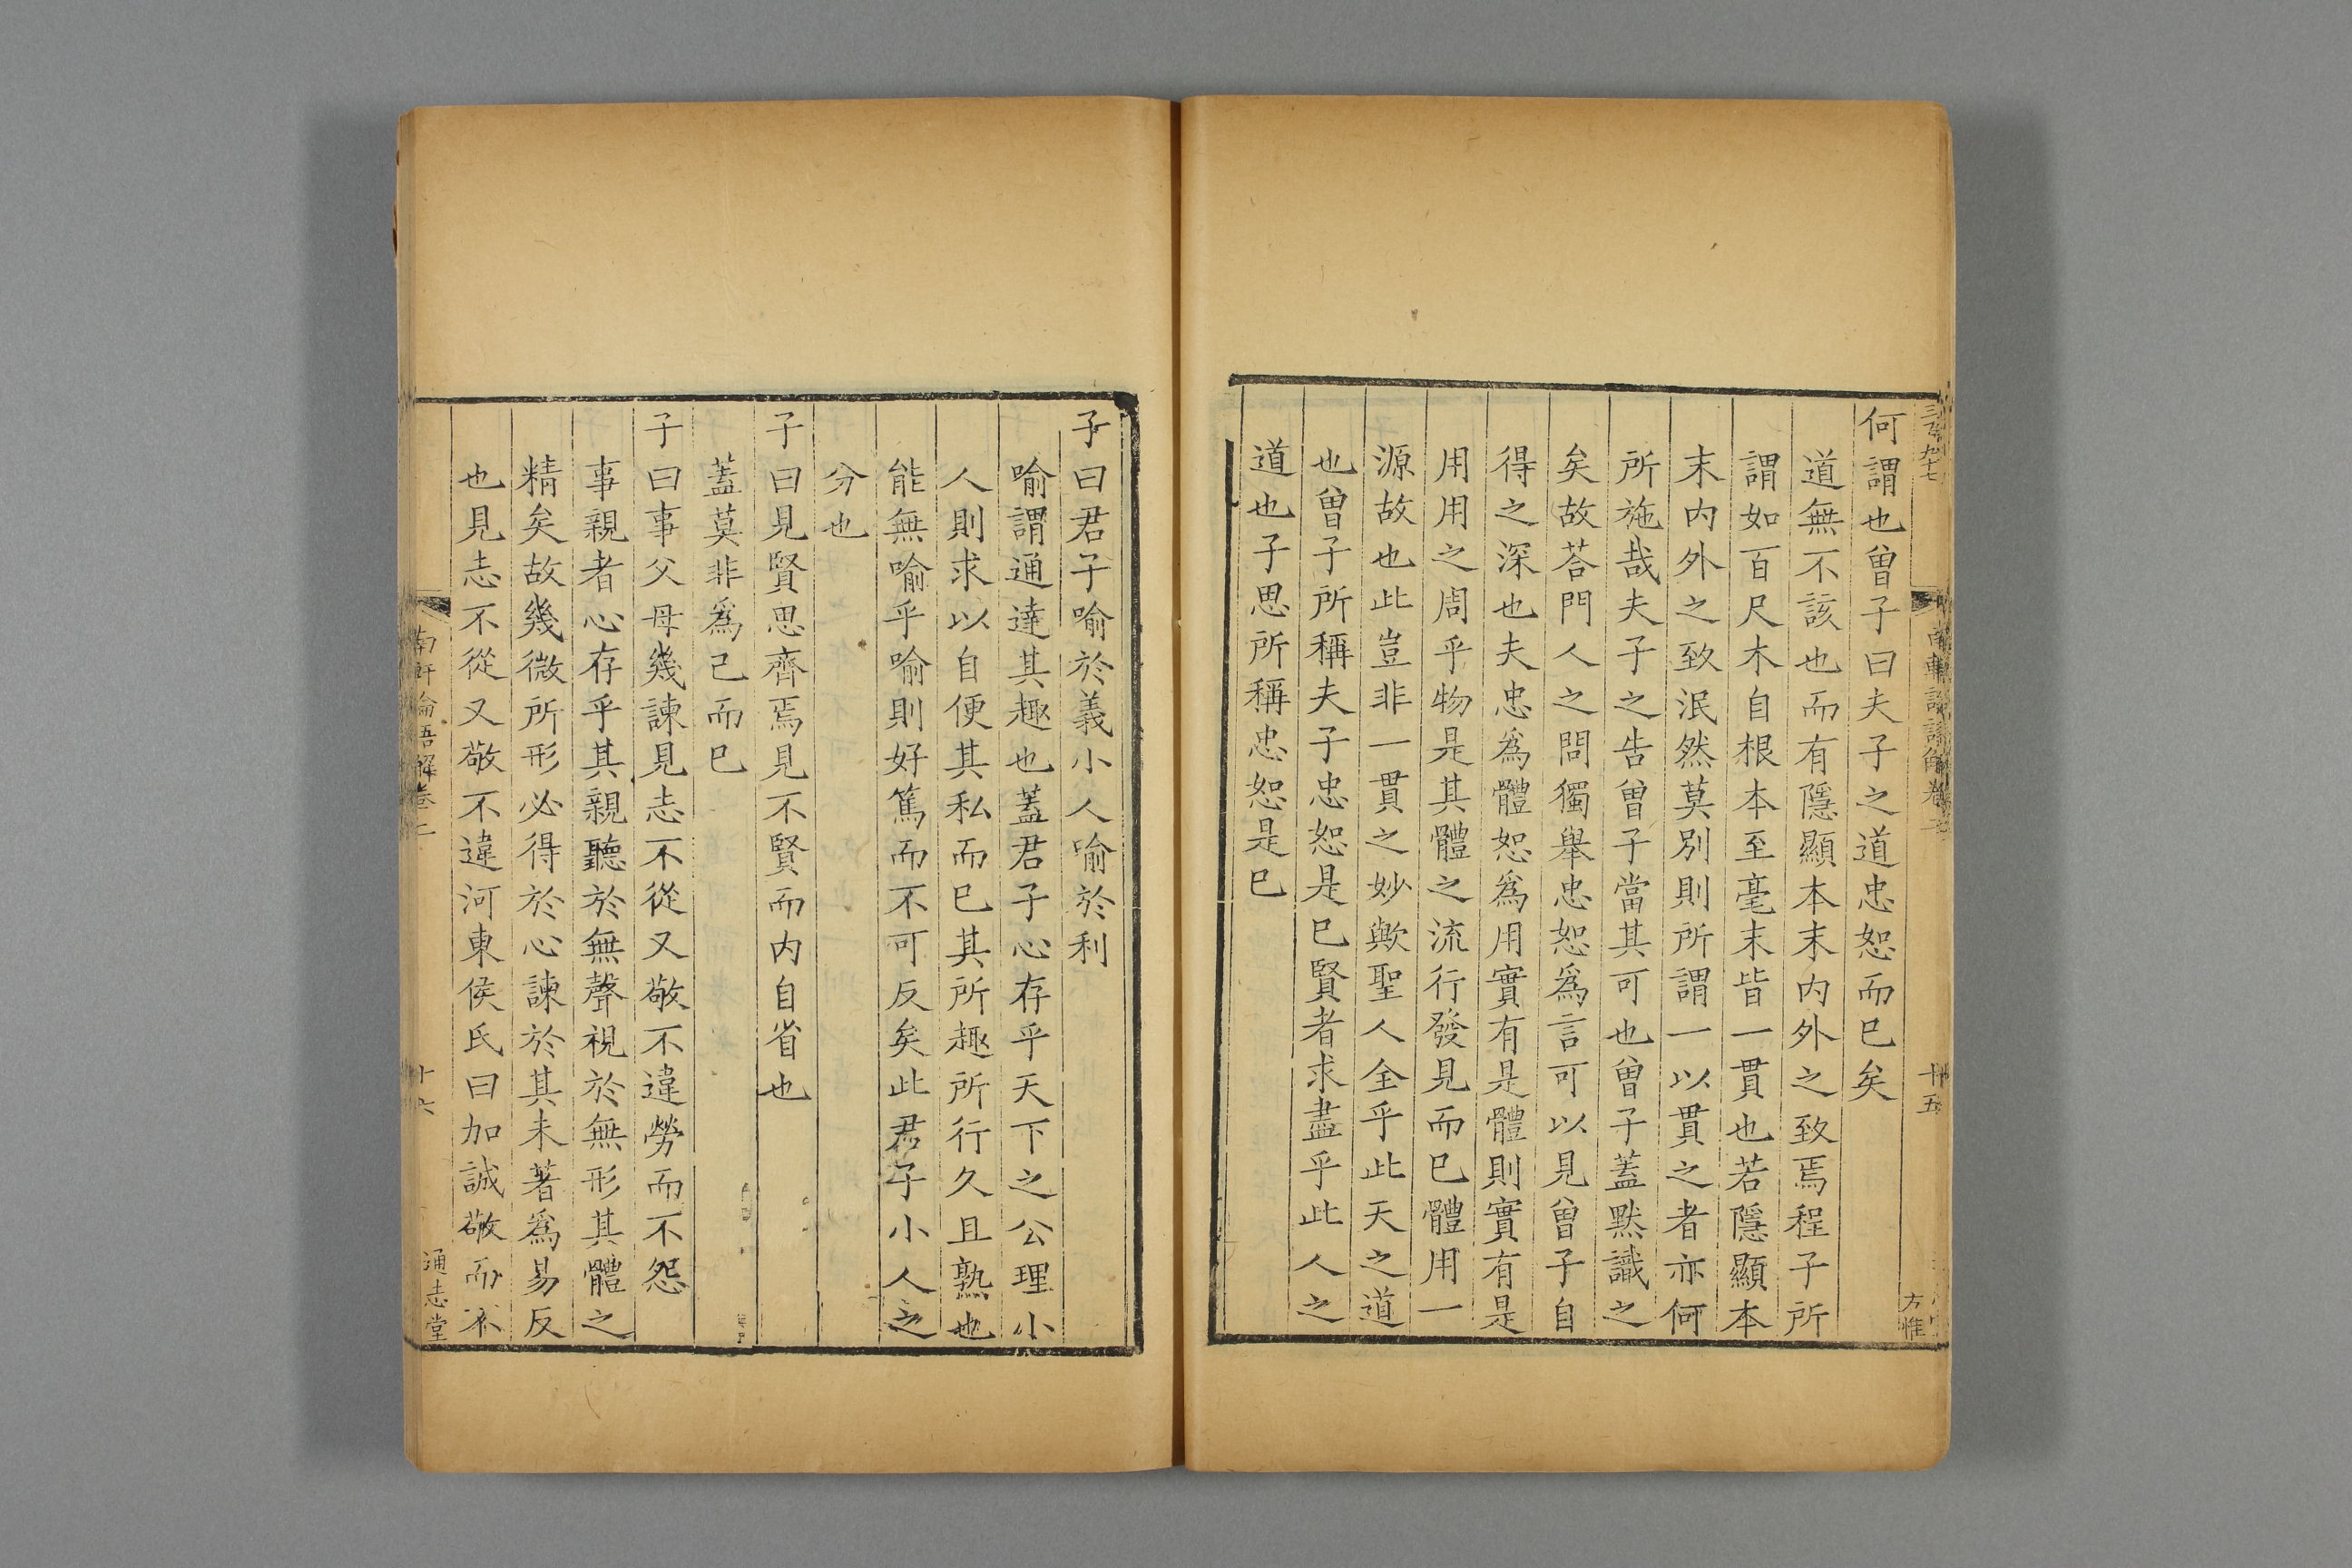 何謂也曾子曰夫子之道忠恕而已矣
道無不該也而有隱顯本末内外之致焉程子所
謂如百尺木自根本至毫末皆一貫也若隱顯本
末内外之致泯然莫別則所謂一以貫之者亦何
所施哉夫子之告曾子當其可也曾子蓋默識之
矣故荅門人之問獨舉忠恕爲言可以見曾子自
得之深也夫忠爲體恕爲用實有是體則實有是
用用之周乎物是其體之流行發見而已體用一
源故也此豈非一貫之妙歟聖人全乎此天之道
也曾子所稱夫子忠恕是已賢者求盡乎此人之
道也子思所稱忠恕是已
十五
方惟
子曰君子喻於義小人喻於利
喻謂通達其趣也蓋君子心存乎天下之公理小
人則求以自便其私而已其所趣所行久且熟也
能無喻乎喻則好篤而不可反矣此君子小人之
分也
子曰見賢思齊焉見不賢而内自省也
蓋莫非爲己而已
子曰事父母幾諫見志不從又敬不違勞而不怨
事親者心存乎其親聽於無聲視於無形其體之
精矣故幾微所形必得於心諫於其未著爲易反
也見志不從又敬不違河東侯氏曰加誠敬而不
南軒論語解卷二
十六
通志堂